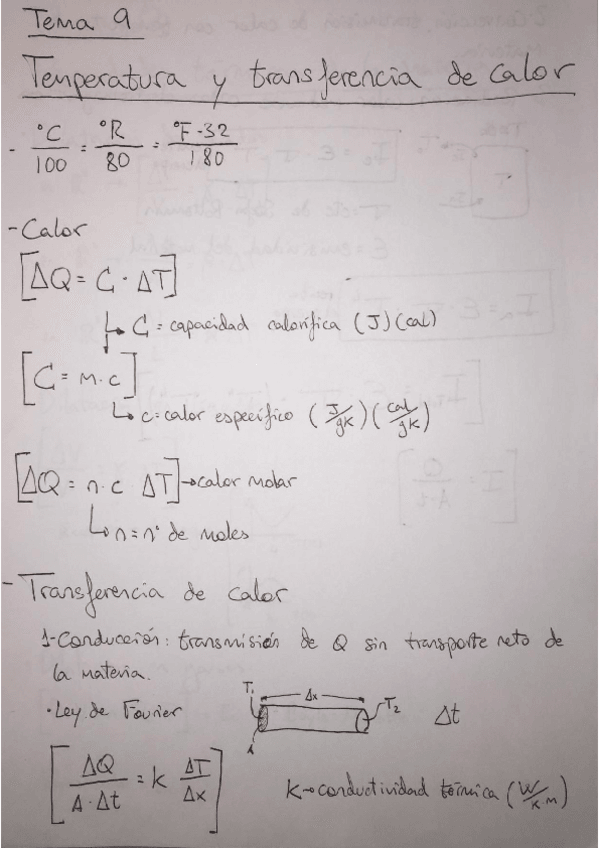 Tema 9
Temperatura y transferencia de calor
- °C/100 = °R/80 = °F-32/180
- Calor
[ΔQ = C · ΔT]
↳ C = capacidad calorífica (J)(cal)
[C = m·c]
↳ c = calor específico (J/gK)(cal/gK)
[ΔQ = n·c ΔT] → calor molar
↳ n = nº de moles
- Transferencia de calor
1- Conducción: transmisión de Q sin transporte neto de
la materia.
· Ley de Fourier
T₁ Δx T₂ Δt
A
[ΔQ/A·Δt = k ΔT/Δx]
k → conductividad térmica (W/K·m)